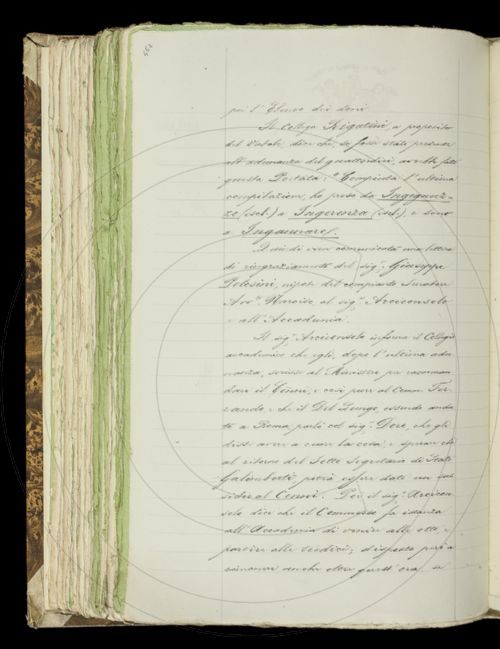 552
poi l'Elenco dei doni.
Il Collega Rigutini, a proposito
del Vatabi, dice che, se fosse stato presente
all'adunanza del quattordici, avrebbe fatto
questa Portata: "Compiuta l'ultima
compilazione, ho preso da Ingegnaz-
ze (scl.) a Ingerenza (scl.), e sono
a Ingannare/.
Quindi vien comunicata una lettera
di ringraziamento del sig.r Giuseppe
Polesini, nipote del compianto Senatore
Avv.o all sig.r Arciconsolo
e all'Accademia.
Il sig.r Arciconsolo informa il Collegio
accademico che egli, dopo l'ultima adu-
nanza, scrisse al Ministero per raccoman-
dare il Cenni, e così pure al Comm. Fer-
rando, e che il Del Lungo, essendo anda-
to a Roma, parlò col sig.r Dore, che gli
disse aver a cuore la cosa; e sperare che
al ritorno del Sotto Segretario di Stato
Galimberti potrà esser dato un sus-
sidio al Cenni. Poi il sig.r Arcicon-
solo dice che il Commesso fa istanza
all'Accademia di venire alle otto, e
partire alle tredici; disposto però a
rimanere anche oltre quest'ora, se